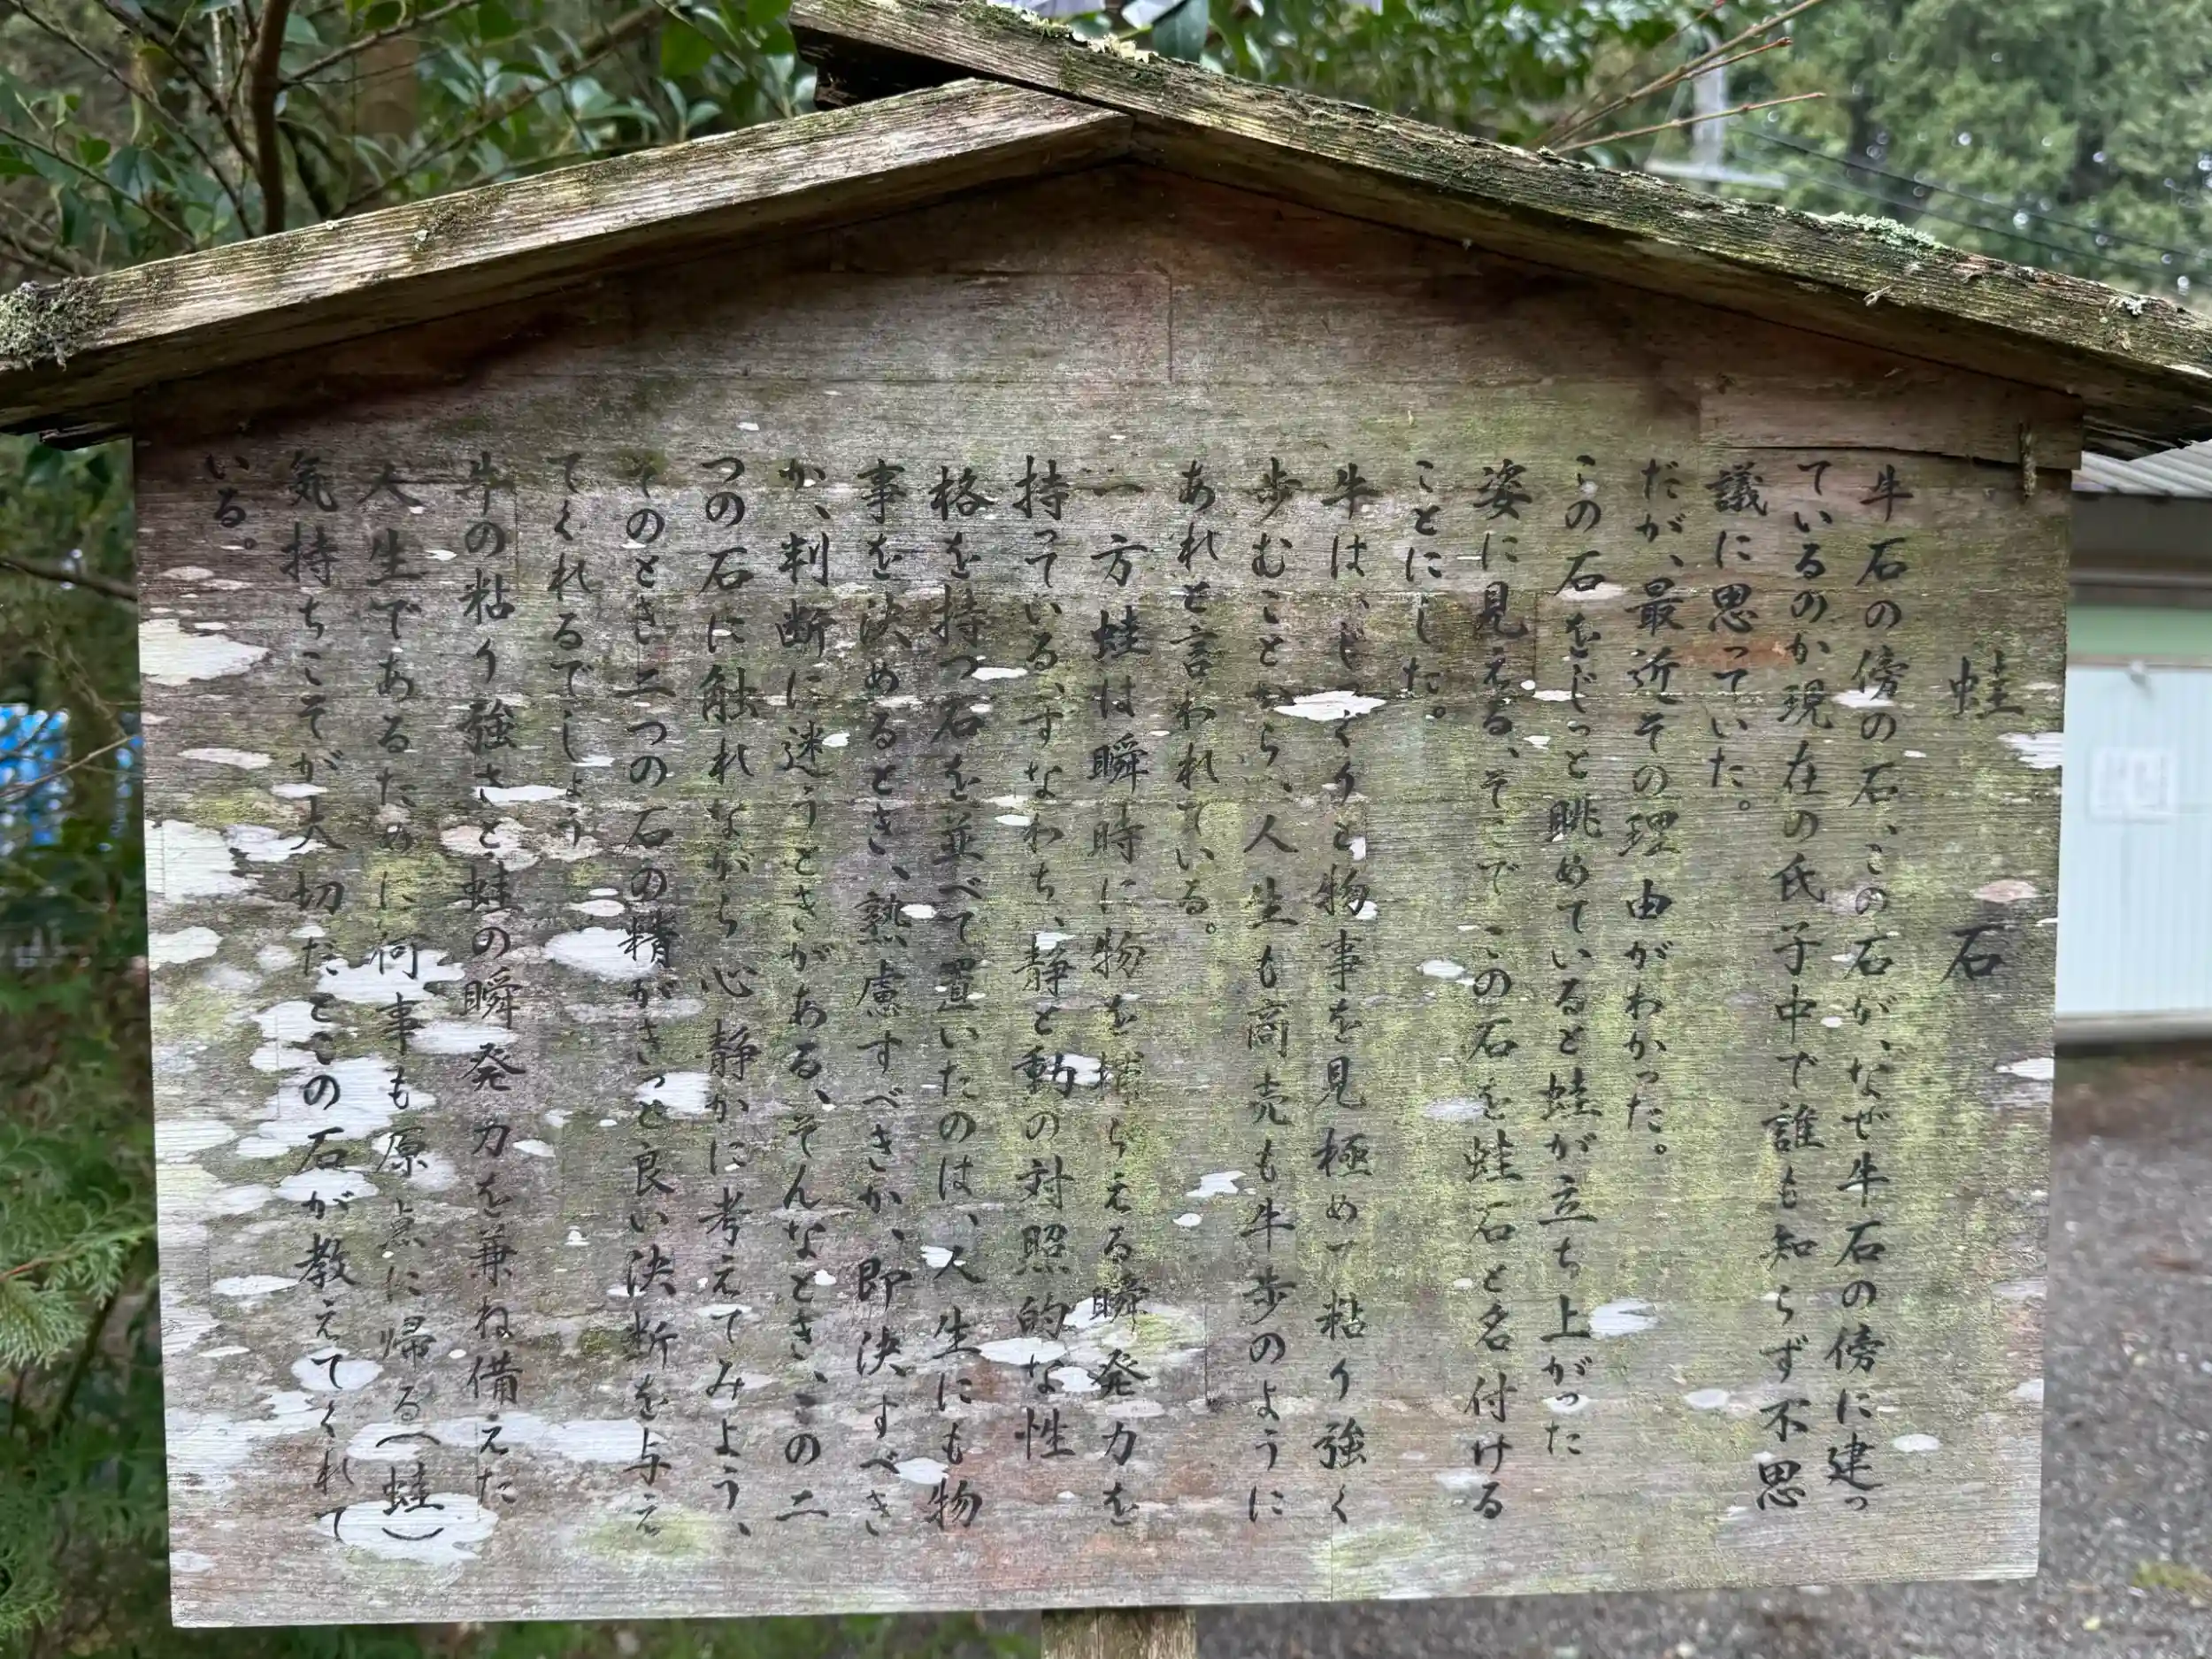 蛙石
牛石の傍の石、この石が、なぜ牛石の傍に建っ
ているのか現在の氏子中で誰も知らず不思
議に思っていた。
だが、最近その理由がわかった。
この石をじっと眺めていると蛙が立ち上がった
姿に見える、そこでこの石を蛙石と名付ける
ことにした。
牛は、じっくりと物事を見極めて粘り強く
歩むことから、人生も商売も牛歩のように
あれと言われている。
一方蛙は瞬時に物を捕らえる瞬発力を
持っている、すなわち、静と動の対照的な性
格を持つ石を並べて置いたのは、人生にも物
事を決めるとき、熟慮すべきか、即決すべき
か、判断に迷うときがある、そんなとき、この二
つの石に触れながら心静かに考えてみよう、
そのとき二つの石の精がきっと良い決断を与え
てくれるでしょう
牛の粘り強さと蛙の瞬発力を兼ね備えた
人生であるために何事も原点に帰る(蛙)
気持ちこそが大切だとこの石が教えてくれて
いる。